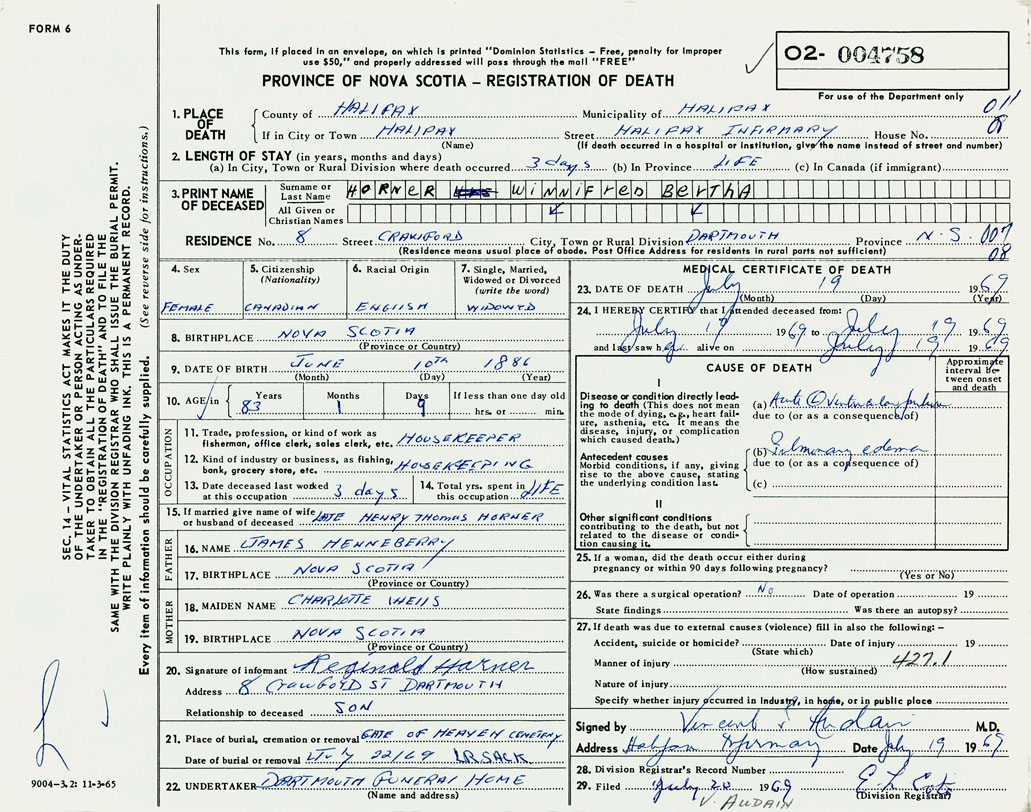 FORM 6
This form, if placed in an envelope, on which is printed "Dominion Statistics – Free, penalty for improper
use $50," and properly addressed will pass through the mail "FREE"
PROVINCE OF NOVA SCOTIA – REGISTRATION OF DEATH
O2- 004758
For use of the Department only
1. PLACE OF DEATH
County of HALIFAX Municipality of HALIFAX 011
If in City or Town HALIFAX Street HALIFAX INFIRMARY House No. 08
(Name) (If death occurred in a hospital or institution, give the name instead of street and number)
2. LENGTH OF STAY (in years, months and days)
(a) In City, Town or Rural Division where death occurred 3 days (b) In Province LIFE (c) In Canada (if immigrant)
3. PRINT NAME OF DECEASED
Surname or Last Name HORNER WINNIFRED BERTHA
All Given or Christian Names
RESIDENCE No. 8 Street CRAWFORD City, Town or Rural Division DARTMOUTH Province N.S. 007
08
(Residence means usual place of abode. Post Office Address for residents in rural parts not sufficient)
4. Sex
FEMALE
5. Citizenship (Nationality)
CANADIAN
6. Racial Origin
ENGLISH
7. Single, Married, Widowed or Divorced (write the word)
WIDOWED
8. BIRTHPLACE NOVA SCOTIA
(Province or Country)
9. DATE OF BIRTH JUNE 10TH 1886
(Month) (Day) (Year)
10. AGE in Years Months Days If less than one day old
83 1 9 hrs. or min.
OCCUPATION
11. Trade, profession, or kind of work as
fisherman, office clerk, sales clerk, etc. HOUSEKEEPER
12. Kind of industry or business, as fishing,
bank, grocery store, etc. HOUSEKEEPING
13. Date deceased last worked
at this occupation 3 days
14. Total yrs. spent in
this occupation LIFE
15. If married give name of wife
or husband of deceased LATE HENRY THOMAS HORNER
FATHER
16. NAME JAMES HENNEBERRY
17. BIRTHPLACE NOVA SCOTIA
(Province or Country)
MOTHER
18. MAIDEN NAME CHARLOTTE WELLS
19. BIRTHPLACE NOVA SCOTIA
(Province or Country)
20. Signature of informant Reginold Horner
Address 8 CRAWFORD ST DARTMOUTH
Relationship to deceased SON
21. Place of burial, cremation or removal GATE OF HEAVEN CEMETERY
Date of burial or removal July 22/69 SACK
22. UNDERTAKER DARTMOUTH FUNERAL HOME
(Name and address)
MEDICAL CERTIFICATE OF DEATH
23. DATE OF DEATH July 19 1969
(Month) (Day) (Year)
24. I HEREBY CERTIFY that I attended deceased from:
July 19 1969 to July 19 1969
and last saw her alive on July 19 1969
CAUSE OF DEATH
Approximate interval between onset and death
I
Disease or condition directly lead-
ing to death (This does not mean
the mode of dying, e.g., heart fail-
ure, asthenia, etc. It means the
disease, injury, or complication
which caused death.)
(a) Acute Ventricular failure
due to (or as a consequence of)
Antecedent causes
Morbid conditions, if any, giving
rise to the above cause, stating
the underlying condition last.
(b) Pulmonary edema
due to (or as a consequence of)
(c)
II
Other significant conditions
contributing to the death, but not
related to the disease or condi-
tion causing it.
25. If a woman, did the death occur either during
pregnancy or within 90 days following pregnancy?
(Yes or No)
26. Was there a surgical operation? No Date of operation 19
State findings Was there an autopsy?
27. If death was due to external causes (violence) fill in also the following: –
Accident, suicide or homicide? Date of injury 19
(State which)
Manner of injury 427.1
(How sustained)
Nature of injury
Specify whether injury occurred in Industry, in home, or in public place
Signed by Vincent Audain M.D.
Address Halifax Infirmary Date July 19 1969
28. Division Registrar's Record Number
29. Filed July 20 1969
(Division Registrar)
V. AUDAIN
SEC. 14 – VITAL STATISTICS ACT MAKES IT THE DUTY
OF THE UNDERTAKER OR PERSON ACTING AS UNDER-
TAKER TO OBTAIN ALL THE PARTICULARS REQUIRED
IN THE "REGISTRATION OF DEATH" AND TO FILE THE
SAME WITH THE DIVISION REGISTRAR WHO SHALL ISSUE THE BURIAL PERMIT.
WRITE PLAINLY WITH UNFADING INK. THIS IS A PERMANENT RECORD.
Every item of information should be carefully supplied. (See reverse side for instructions.)
9004–3.2: 11-3-65